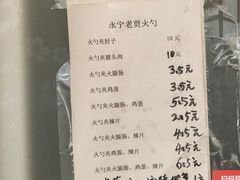 永宁老贾火勺
火勺夹肘子 10元
火勺夹猪头肉 10元
火勺夹火腿肠 3.5元
火勺夹鸡蛋 3.5元
火勺夹鸡蛋、火腿肠 5.5元
火勺夹辣片 2.5元
火勺夹火腿肠、辣片 4.5元
火勺夹鸡蛋、辣片 4.5元
火勺夹鸡蛋、火腿肠、辣片 6.5元